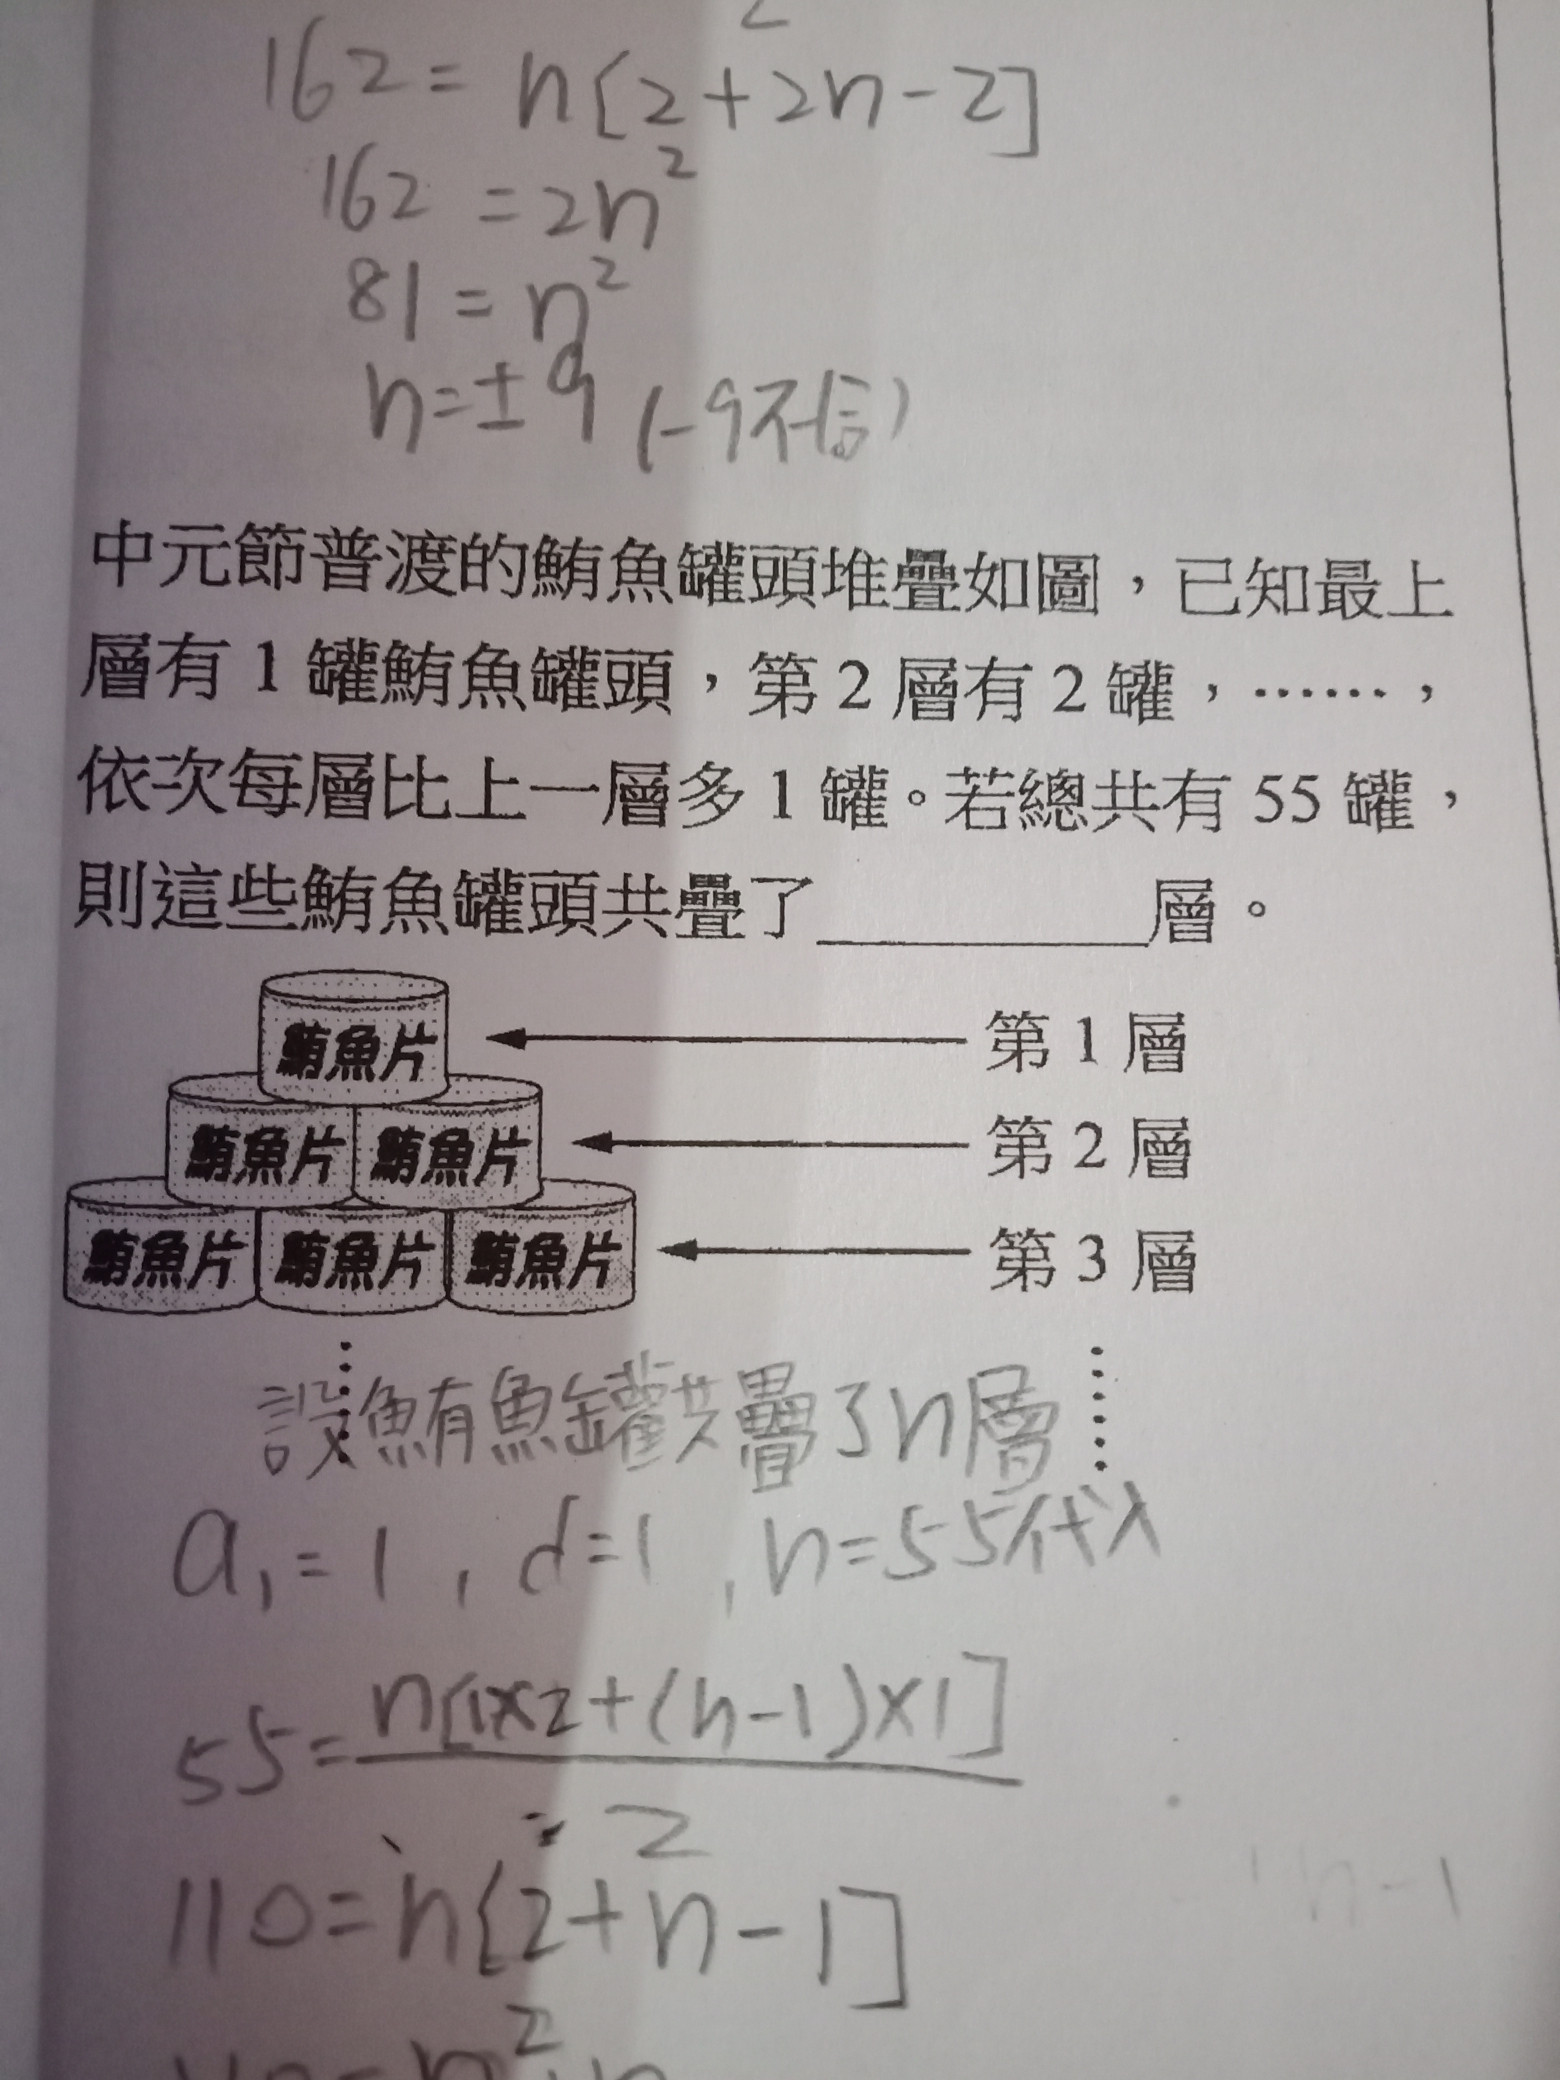 2
162 = n[2+2n-2]
162 = 2n²
81 = n²
n = ±9 (-9不合)
中元節普渡的鮪魚罐頭堆疊如圖，已知最上
層有 1 罐鮪魚罐頭，第 2 層有 2 罐，……，
依次每層比上一層多 1 罐。若總共有 55 罐，
則這些鮪魚罐頭共疊了________層。
鮪魚片 第 1 層
鮪魚片 鮪魚片 第 2 層
鮪魚片 鮪魚片 鮪魚片 第 3 層
設鮪魚罐共疊了n層
a₁=1, d=1, n=55代入
55=n[1×2+(n-1)×1]
2
110=n[2+n-1]
n-1